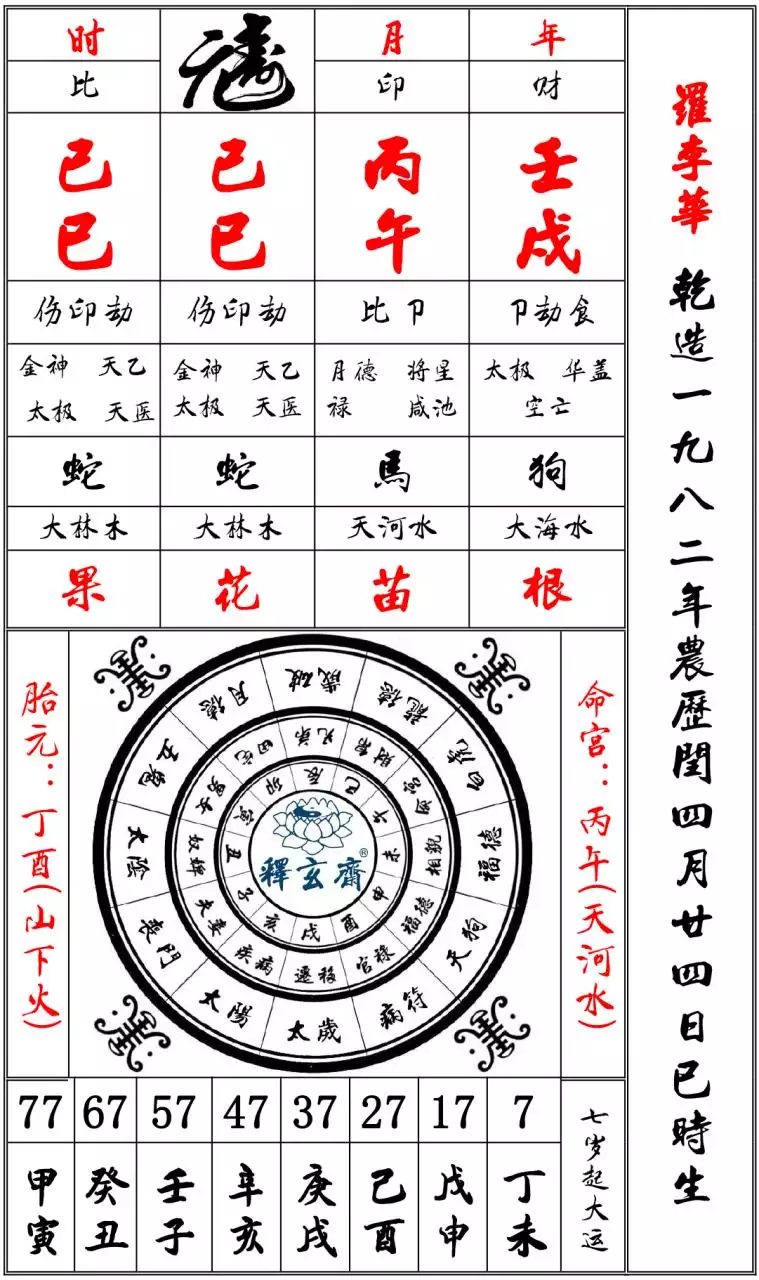 羅李華 乾造一九八二年農歷閏四月廿四日巳時生
时 月 年
比 印 财
己 己 丙 壬
巳 巳 午 戌
伤印劫 伤印劫 比卩 卩劫食
金神 天乙 金神 天乙 月德 将星 太极 华盖
太极 天医 太极 天医 禄 咸池 空亡
蛇 蛇 馬 狗
大林木 大林木 天河水 大海水
果 花 苗 根
胎元：丁酉（山下火）
歲破 龍德 白虎 福德 天狗 病符 太歲 太陽 喪門 太陰 五鬼 月德
兄弟 財帛 命宮 相貌 福德 官禄 遷移 疾病 夫妻 奴婢 男女 田宅
辰 巳 午 未 申 酉 戌 亥 子 丑 寅 卯
釋玄齋®
命宫：丙午（天河水）
77 67 57 47 37 27 17 7
甲 癸 壬 辛 庚 己 戊 丁
寅 丑 子 亥 戌 酉 申 未
七岁起大运